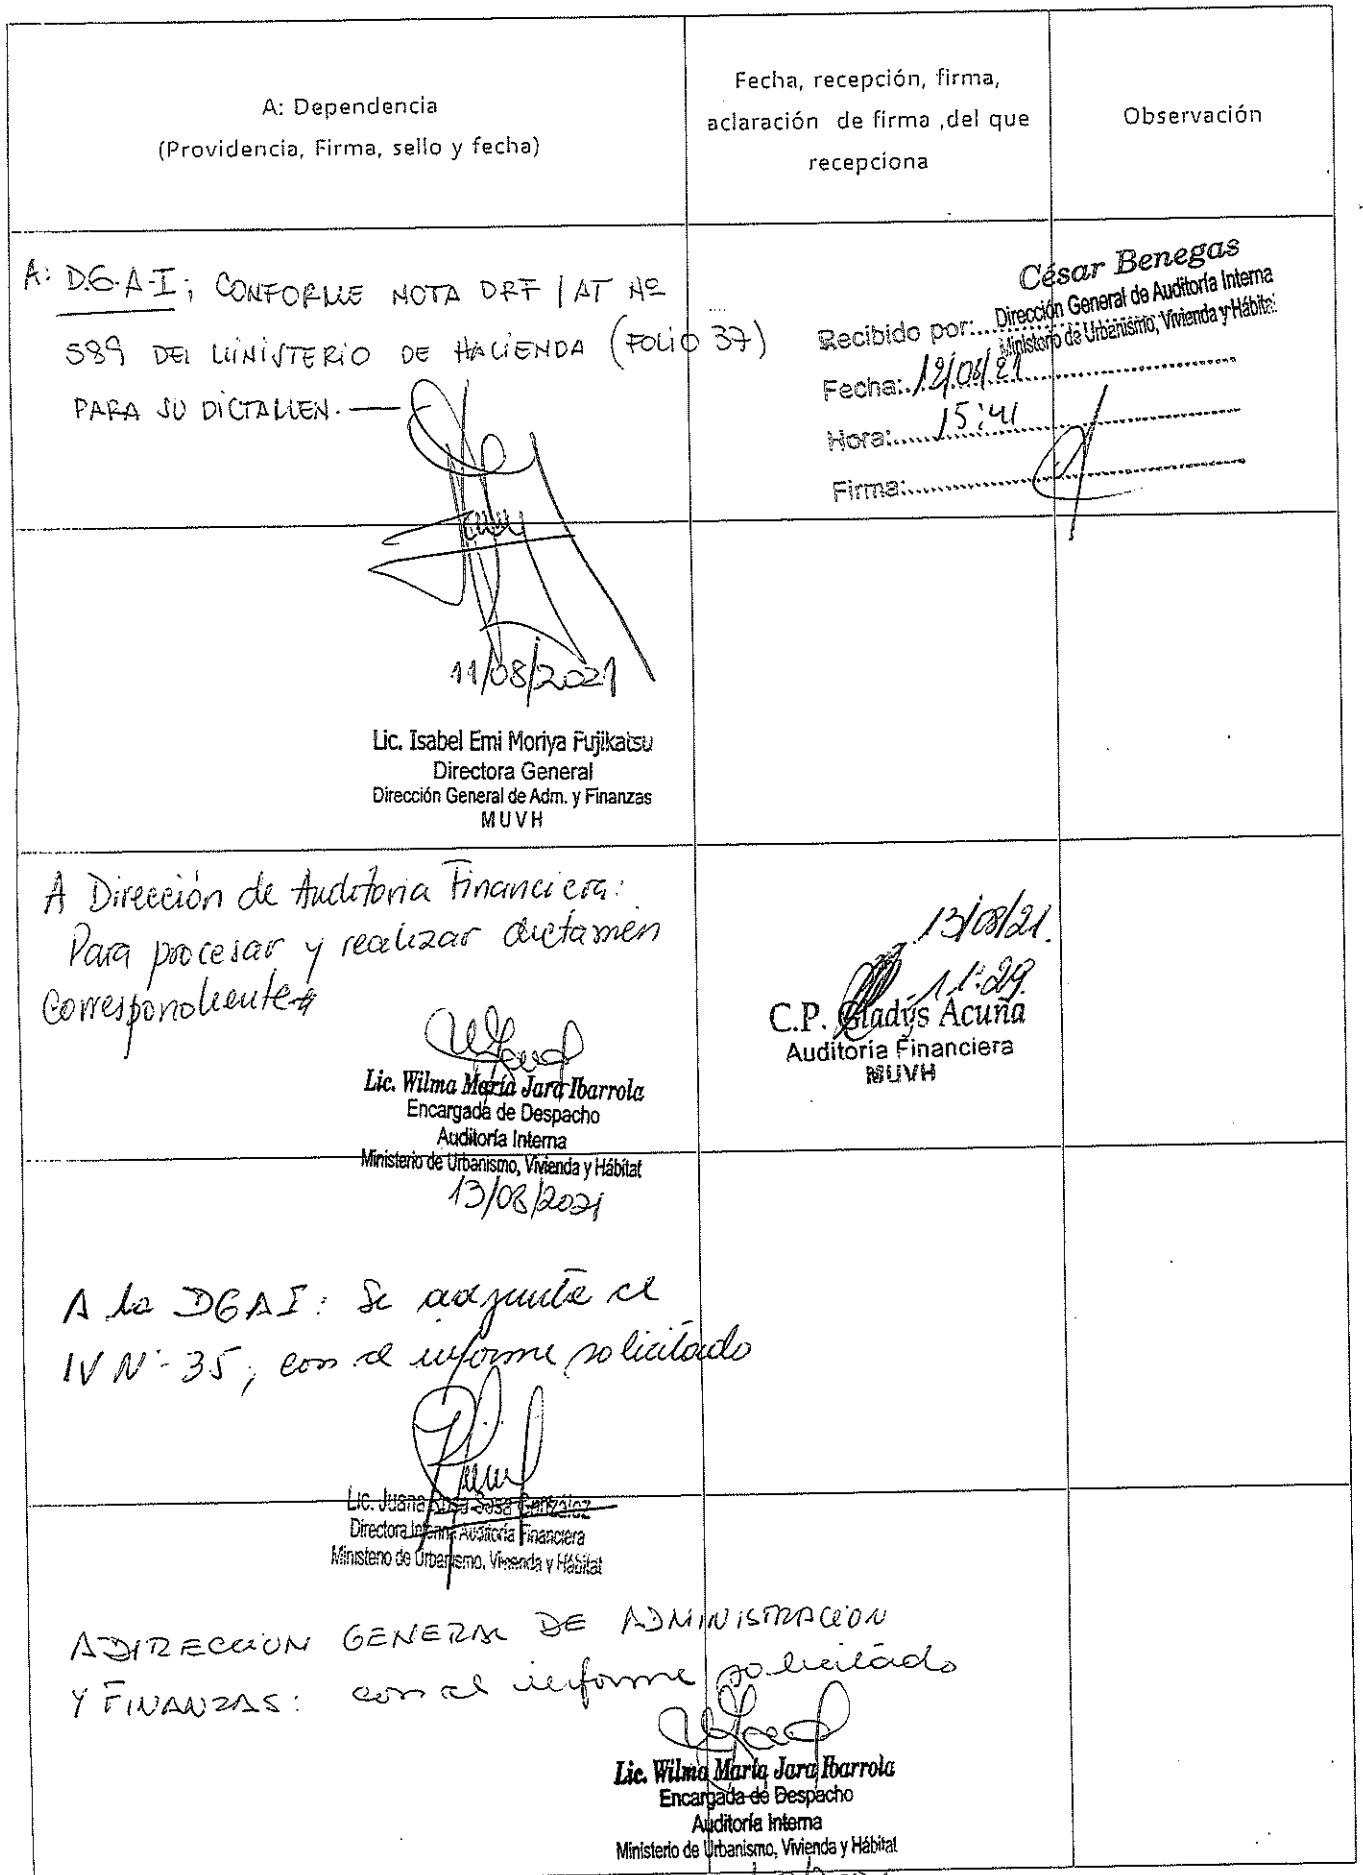 A: Dependencia
(Providencia, Firma, sello y fecha)
Fecha, recepción, firma,
aclaración de firma ,del que
recepciona
Observación
A: D.G.A-I; CONFORME NOTA DRF / AT Nº
589 DEL MINISTERIO DE HACIENDA (FOLIO 37)
PARA SU DICTAMEN.
11/08/2021
Lic. Isabel Emi Moriya Fujikatsu
Directora General
Dirección General de Adm. y Finanzas
MUVH
César Benegas
Dirección General de Auditoría Interna
Ministerio de Urbanismo, Vivienda y Hábitat
Recibido por:
Fecha: 12/08/21
Hora: 15:41
Firma:
A Dirección de Auditoria Financiera:
Para procesar y realizar dictamen
Correspondiente
Lic. Wilma María Jara Ibarrola
Encargada de Despacho
Auditoría Interna
Ministerio de Urbanismo, Vivienda y Hábitat
13/08/2021
13/08/21.
11:29.
C.P. Gladys Acuña
Auditoría Financiera
MUVH
A la DGAI: Se adjunta el
IV Nº 35, con el informe solicitado
Lic. Juana Rosa Sosa González
Directora Interina Auditoría Financiera
Ministerio de Urbanismo, Vivienda y Hábitat
A DIRECCION GENERAL DE ADMINISTRACION
Y FINANZAS: con el informe solicitado
Lic. Wilma María Jara Ibarrola
Encargada de Despacho
Auditoría Interna
Ministerio de Urbanismo, Vivienda y Hábitat